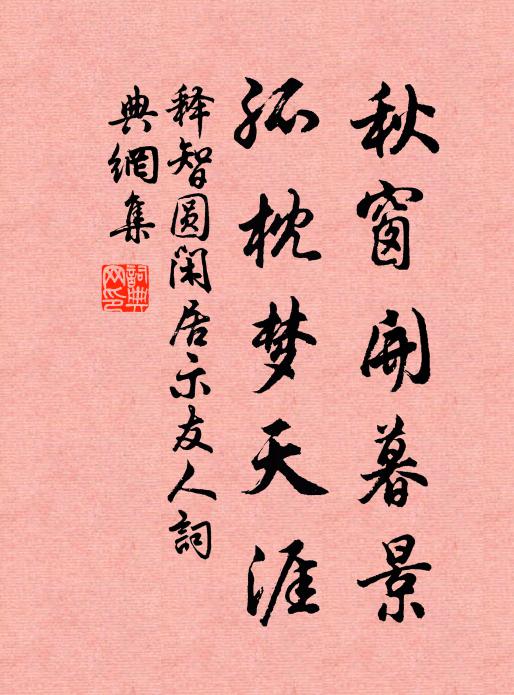 秋窗開暮景
孤枕梦天涯
释智圆闲居示友人詞
典網集
詞典
网印